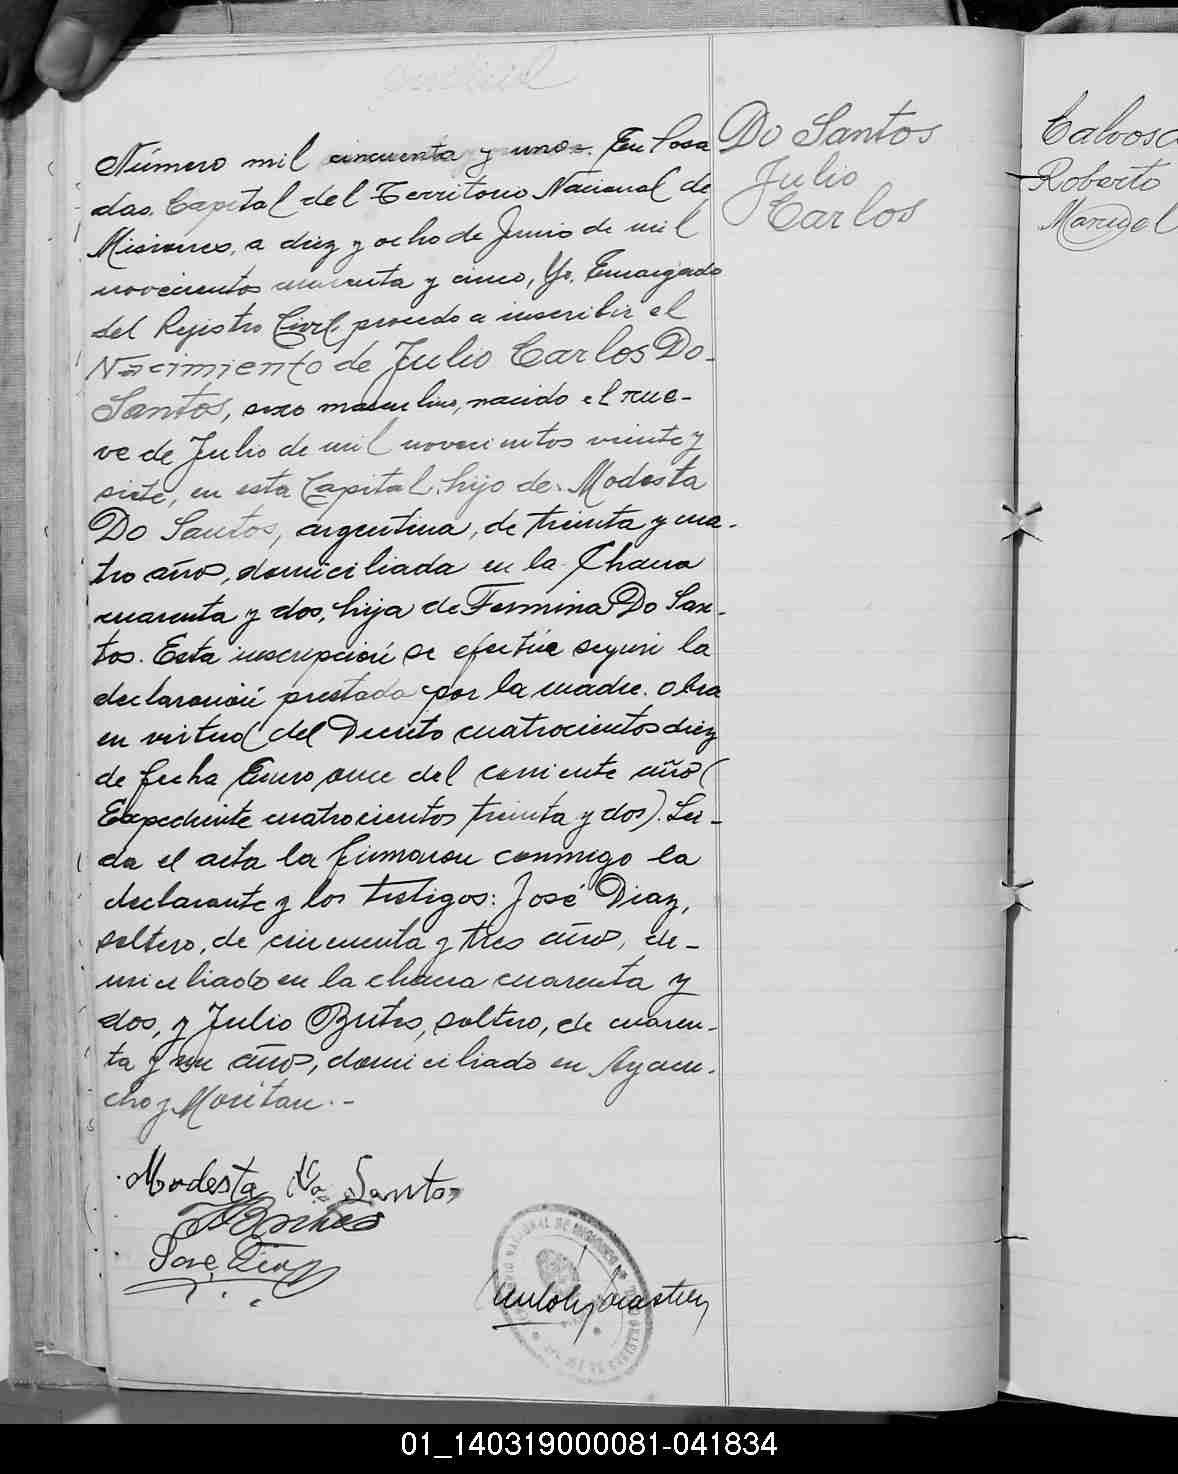 Número mil cincuenta y uno. En Posa
das. Capital del Territorio Nacional de
Misiones, a diez y ocho de Junio de mil
novecientos cuarenta y cinco, Yo, Encargado
del Rejistro Civil, procedo a inscribir el
Nacimiento de Julio Carlos Do-
Santos, sexo masculino, nacido el nue-
ve de Julio de mil novecientos veinte y
siete, en esta Capital, hijo de Modesta
Do Santos, argentina, de treinta y cua-
tro años, domiciliada en la Chacra
cuarenta y dos, hija de Fermina Do San-
tos. Esta inscripción se efectúa según la
declaración prestada por la madre. obra
en virtud del Decreto cuatrocientos diez
de fecha Enero once del corriente año (
Expediente cuatrocientos treinta y dos). Lei-
da el acta la firmaron conmigo la
declarante y los testigos: José Diaz,
soltero, de cincuenta y tres años, do-
miciliado en la chacra cuarenta y
dos, y Julio Brites, soltero, de cuaren-
ta y un años, domiciliado en Ayacu-
cho y
Modesta Do Santos
José Díaz
Do Santos
Julio
Carlos
Roberto
Manuel
01_140319000081-041834